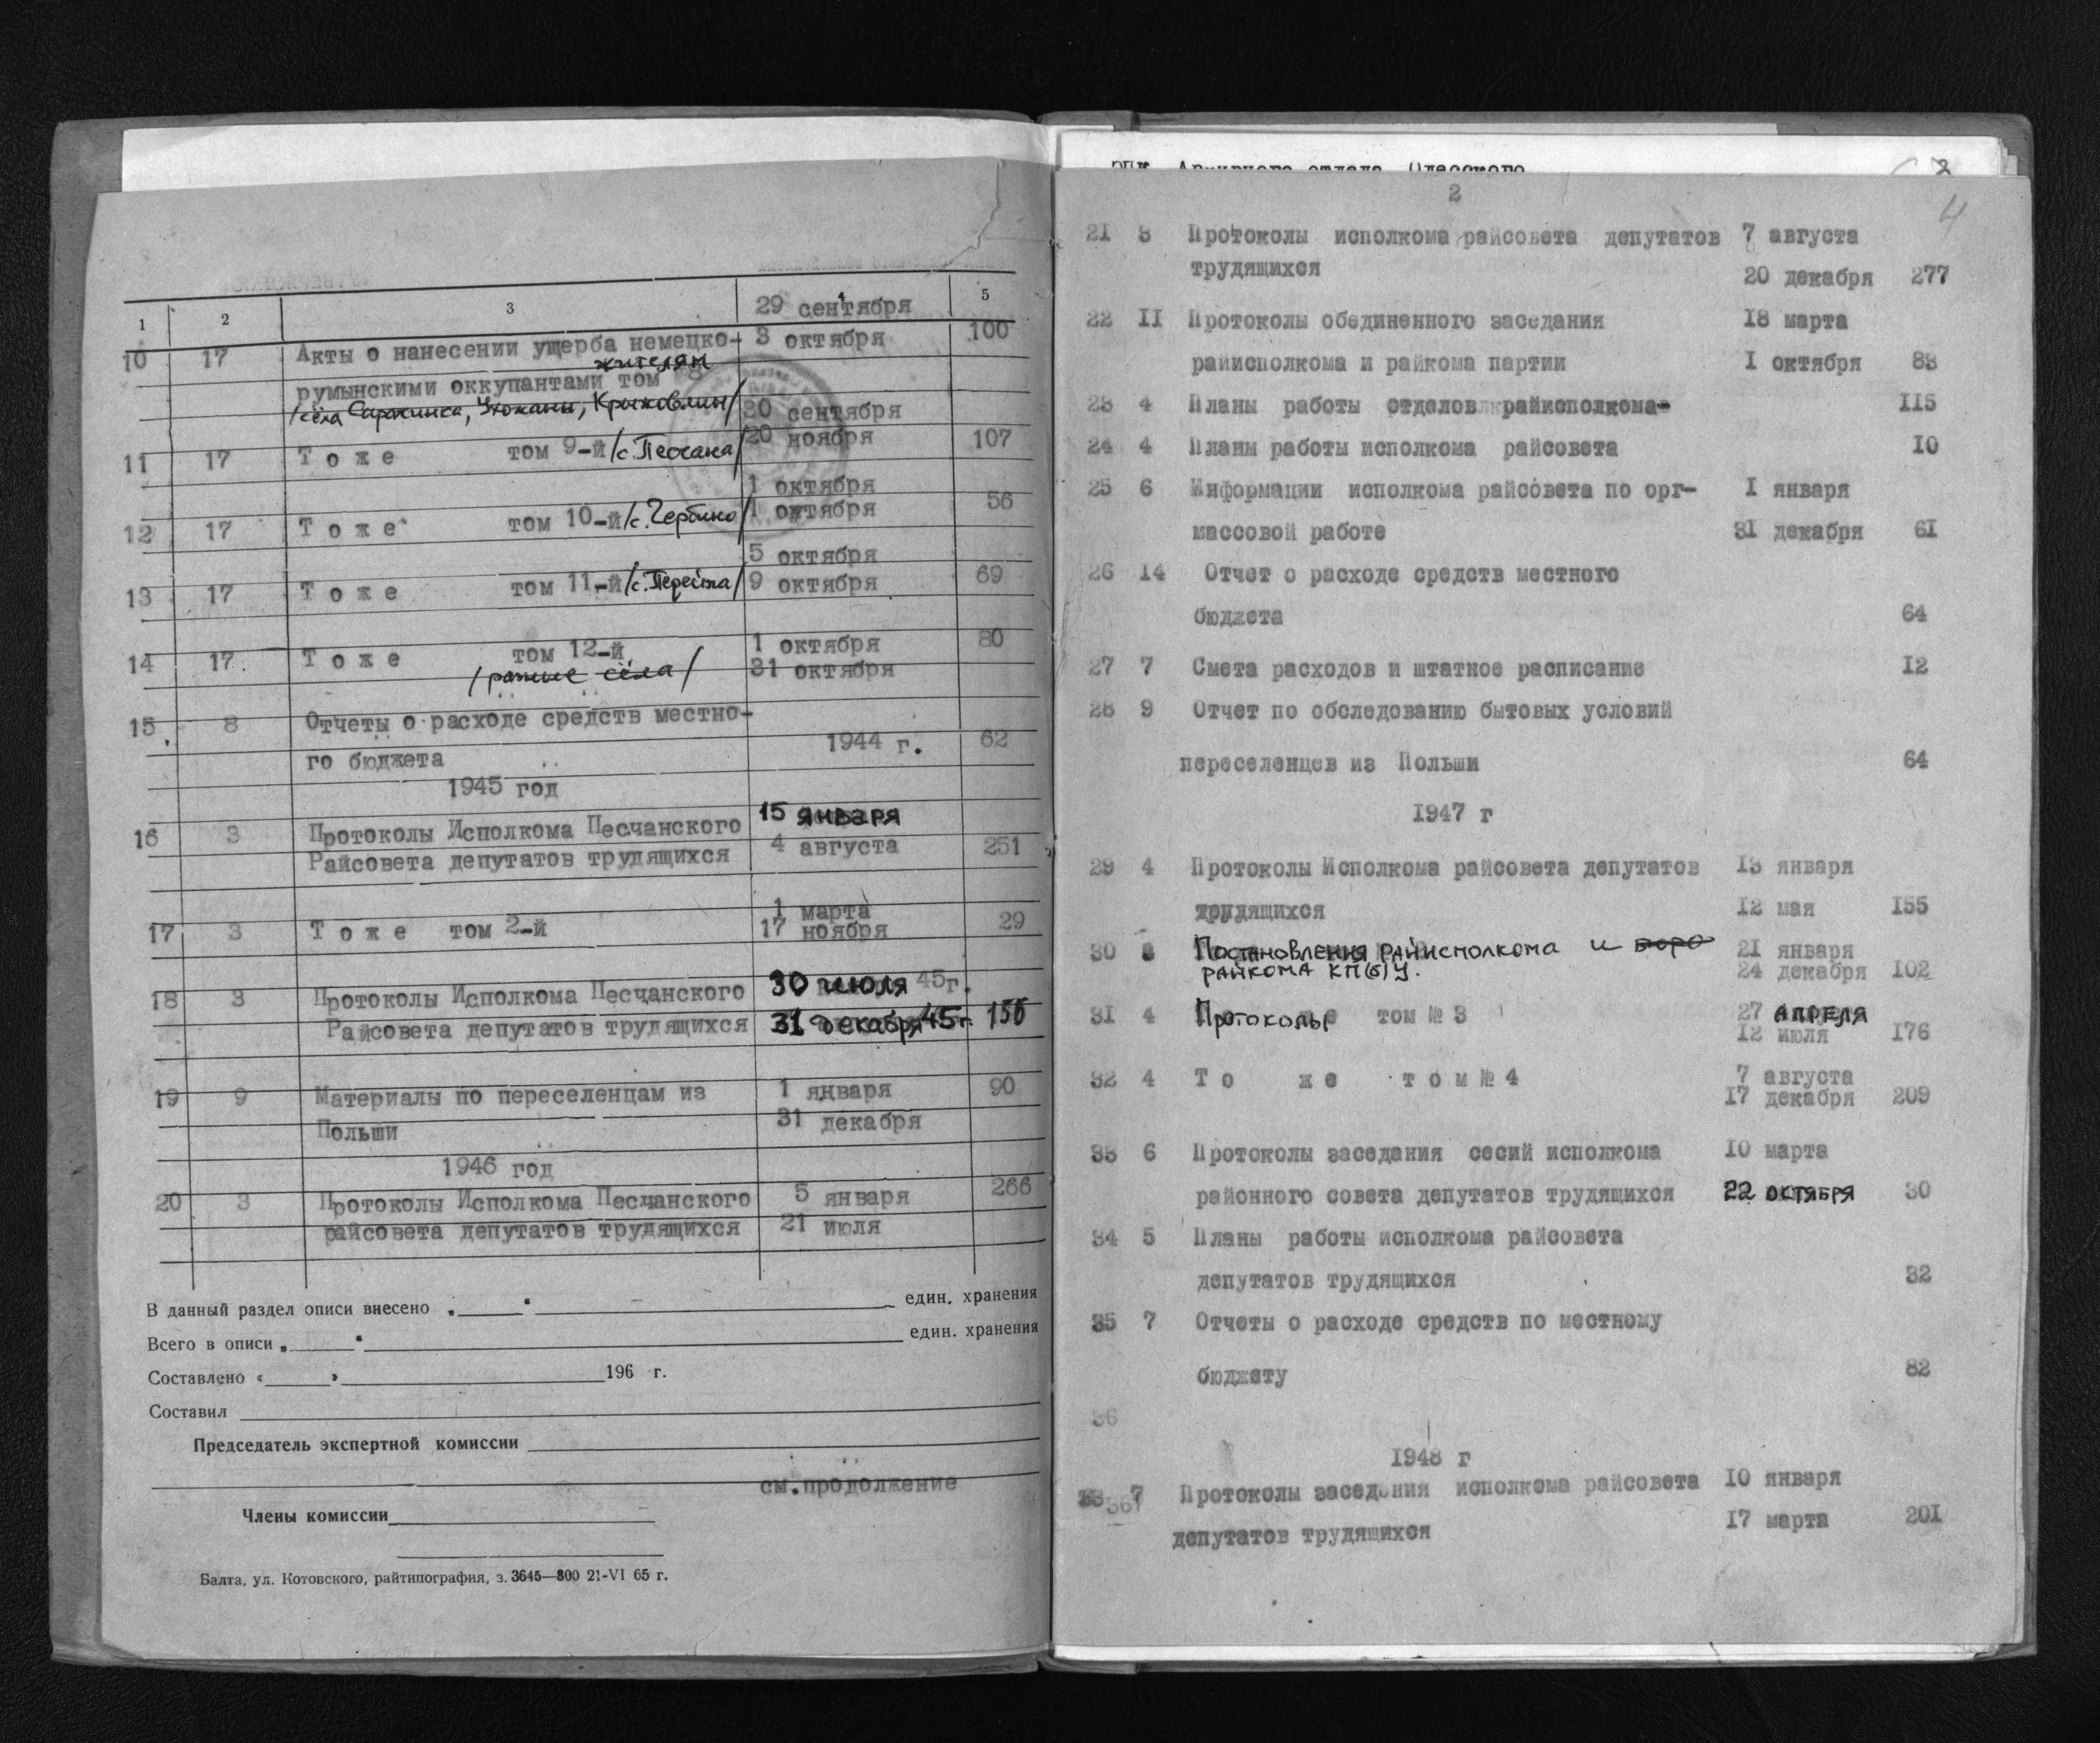 1 2 3 4 5
29 сентября
10 17 Акты о нанесении ущерба немецко- 3 октября 100
жителям
румынскими оккупантами том 8
/сёла Саражинка, Крыжовлин/ 30 сентября
11 17 Тоже том 9-й /с. Песчана/ 20 ноября 107
1 октября
12 17 Тоже том 10-й /с. / 1 октября 56
5 октября
13 17 Тоже том 11-й /с. Перейма/ 9 октября 69
14 17 Тоже том 12-й 1 октября 80
/разные сёла/ 31 октября
15 8 Отчеты о расходе средств местно-
го бюджета 1944 г. 62
1945 год
15 января
16 3 Протоколы Исполкома Песчанского
Райсовета депутатов трудящихся 4 августа 251
1 марта
17 3 Тоже том 2-й 17 ноября 29
18 3 Протоколы Исполкома Песчанского 30 июля 45г.
Райсовета депутатов трудящихся 31 декабря 45 г. 156
19 9 Материалы по переселенцам из 1 января 90
Польши 31 декабря
1946 год
20 3 Протоколы Исполкома Песчанского 5 января 266
райсовета депутатов трудящихся 21 июля
В данный раздел описи внесено „ “ един. хранения
Всего в описи „ “ един. хранения
Составлено « » 196 г.
Составил
Председатель экспертной комиссии
см.продолжение
Члены комиссии
Балта, ул. Котовского, райтипография, з. 3645—800 21-VI 65 г.
Архивного отдела Одесского
2
4
21 3 Протоколы исполкома райсовета депутатов 7 августа
трудящихся 20 декабря 277
22 II Протоколы обединенного заседания I8 марта
райисполкома и райкома партии I октября 83
23 4 Планы работы отделов райисполкома- II5
24 4 Планы работы исполкома райсовета I0
25 6 Информации исполкома райсовета по орг- I января
массовой работе 3I декабря 6I
26 I4 Отчет о расходе средств местного
бюджета 64
27 7 Смета расходов и штатное расписание I2
28 9 Отчет по обследованию бытовых условий
переселенцев из Польши 64
I947 г
29 4 Протоколы Исполкома райсовета депутатов I3 января
трудящихся I2 мая I55
30 3 Постановления райисполкома и бюро 2I января
райкома КП(б)У. 24 декабря I02
3I 4 Протоколы том № 3 27 апреля
I2 июля I76
32 4 То же том № 4 7 августа
I7 декабря 209
33 6 Протоколы заседания сесий исполкома I0 марта
районного совета депутатов трудящихся 22 октября 30
34 5 Планы работы исполкома райсовета
депутатов трудящихся 32
35 7 Отчеты о расходе средств по местному
бюджету 82
36
I948 г
36 7 Протоколы заседания исполкома райсовета I0 января
депутатов трудящихся I7 марта 20I